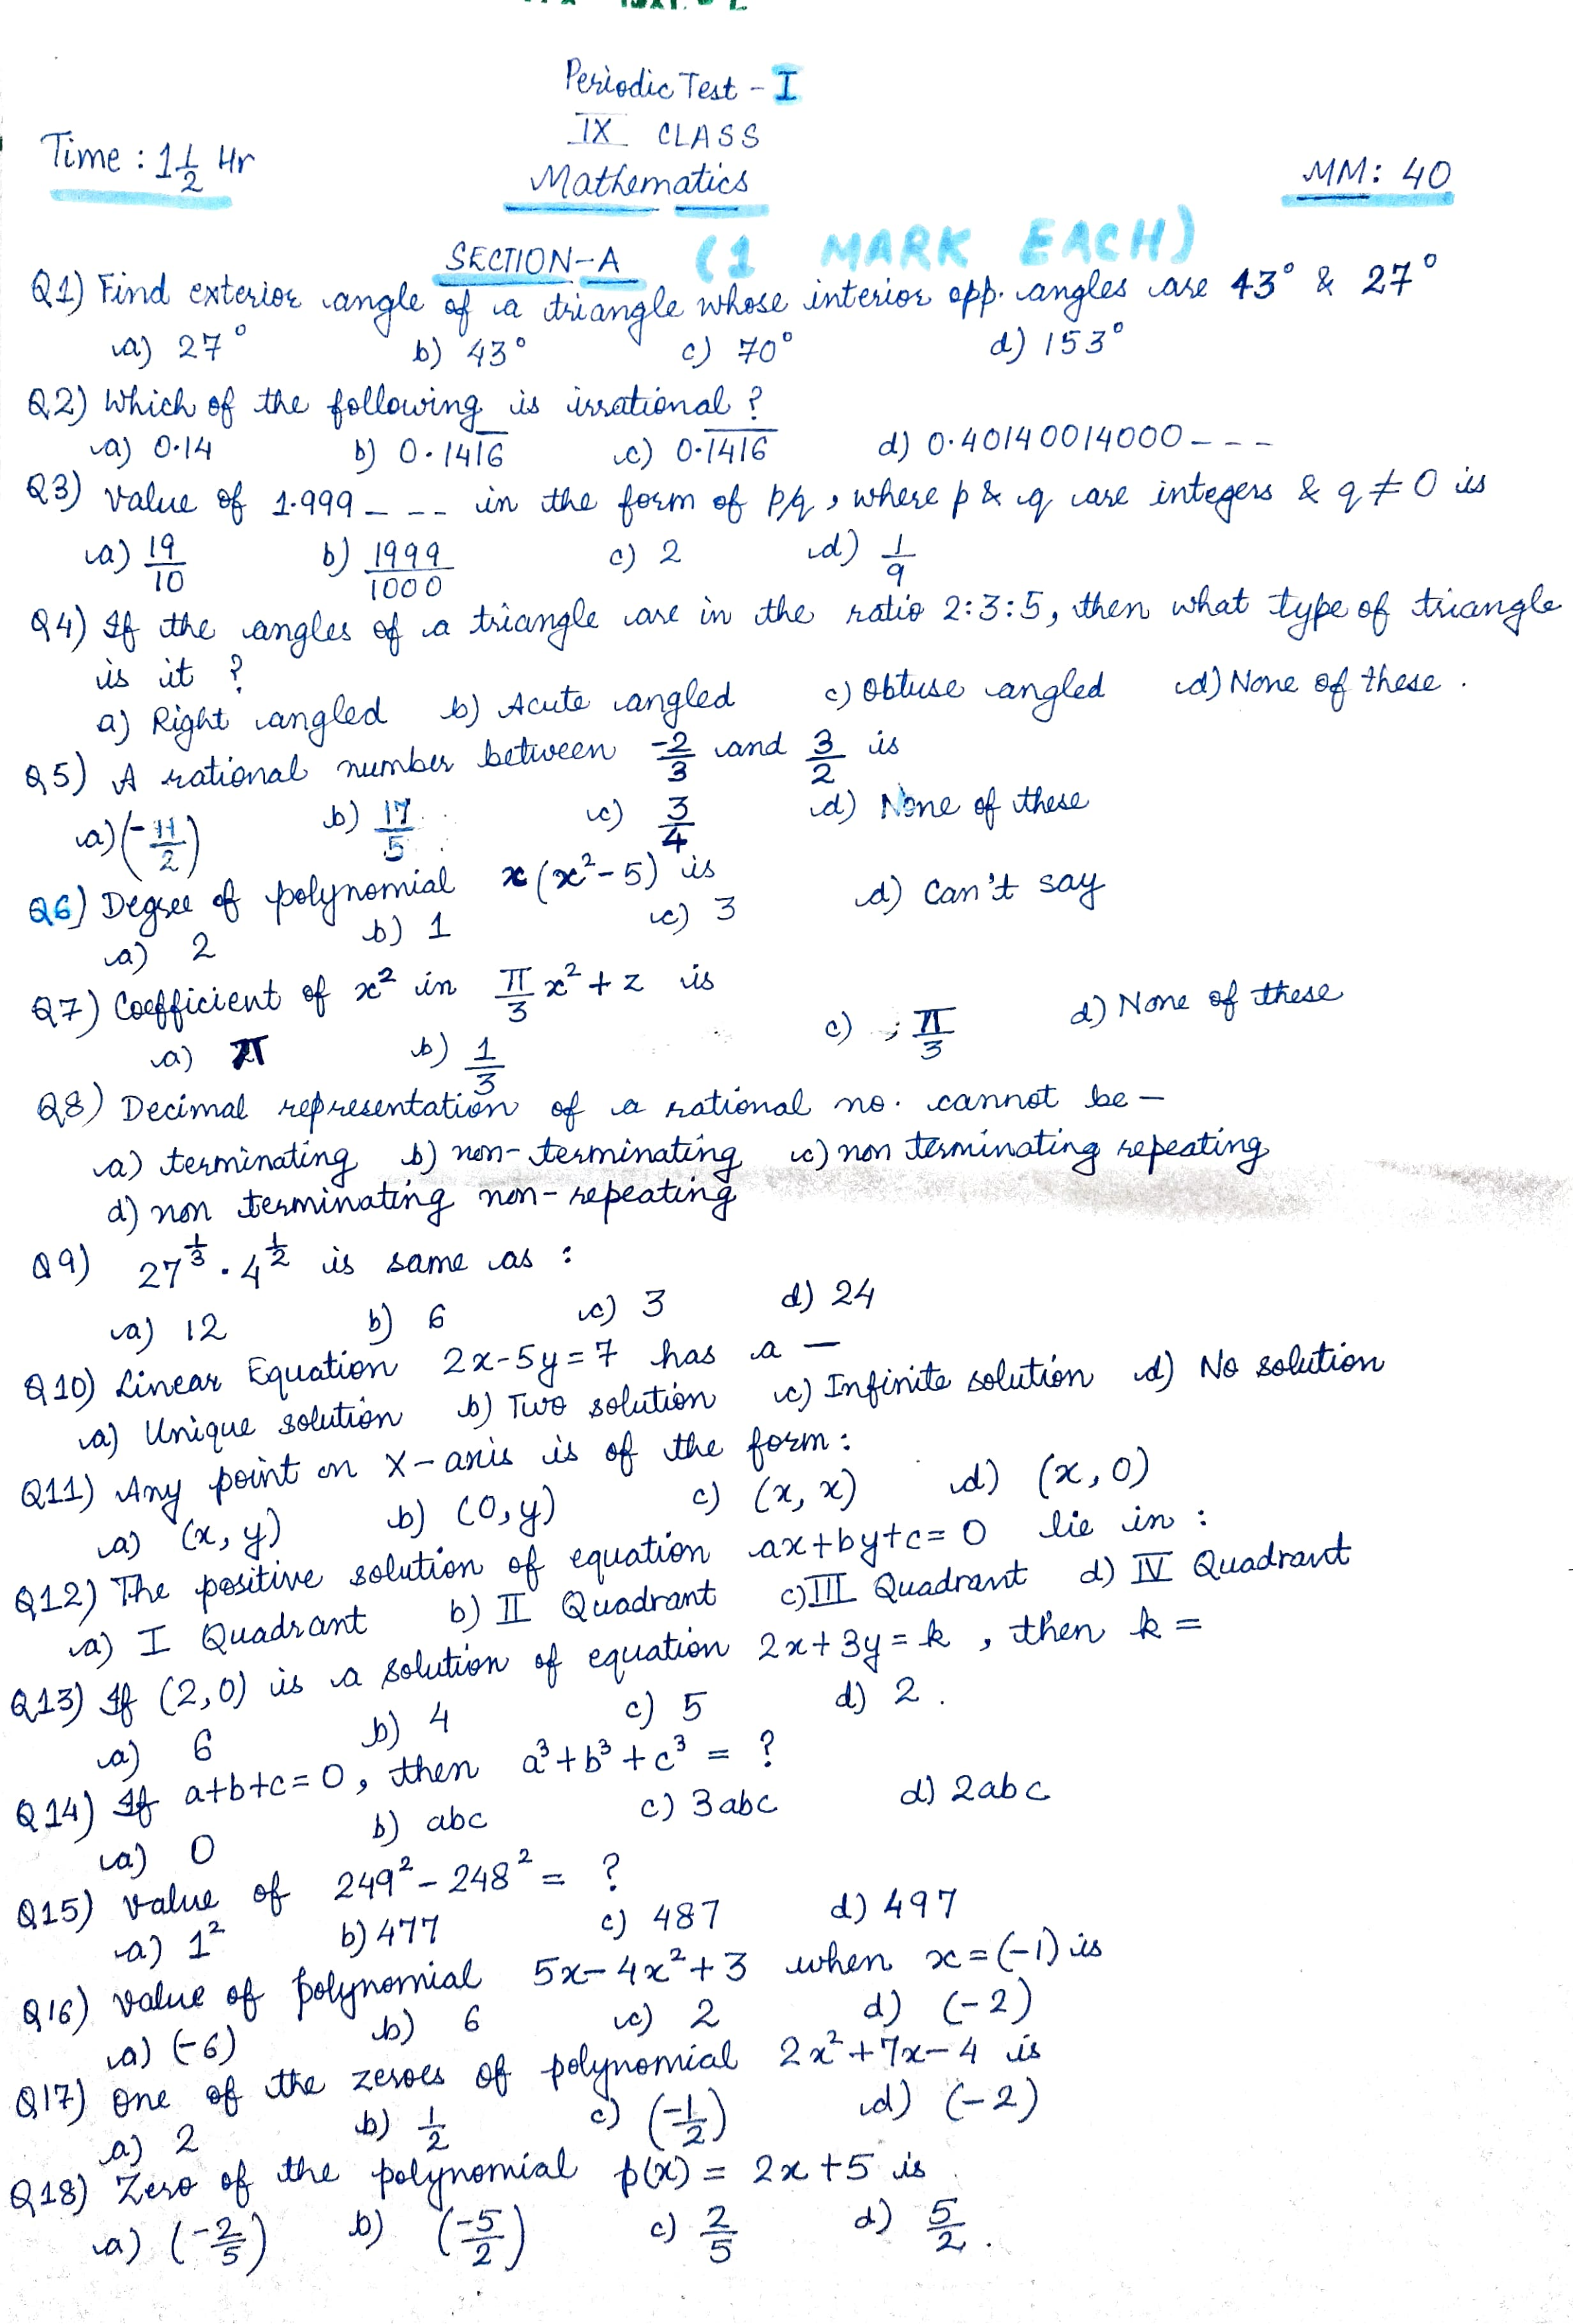 Periodic Test - I
IX CLASS
Time : 1 1/2 Hr
Mathematics
MM: 40
SECTION-A (1 MARK EACH)
Q1) Find exterior angle of a triangle whose interior opp. angles are 43° & 27°
a) 27° b) 43° c) 70° d) 153°
Q2) Which of the following is irrational ?
a) 0.14 b) 0.141̅6̅ c) 0.1̅4̅1̅6̅ d) 0.40140014000 - - -
Q3) Value of 1.999 - - - in the form of p/q, where p & q are integers & q ≠ 0 is
a) 19/10 b) 1999/1000 c) 2 d) 1/9
Q4) If the angles of a triangle are in the ratio 2:3:5, then what type of triangle
is it ?
a) Right angled b) Acute angled c) Obtuse angled d) None of these .
Q5) A rational number between -2/3 and 3/2 is
a) (-11/2) b) 17/5 c) 3/4 d) None of these
Q6) Degree of polynomial x(x²-5) is
a) 2 b) 1 c) 3 d) Can't say
Q7) Coefficient of x² in π/3 x² + z is
a) π b) 1/3 c) π/3 d) None of these
Q8) Decimal representation of a rational no. cannot be –
a) terminating b) non-terminating c) non terminating repeating
d) non terminating non-repeating
Q9) 27^1/3 . 4^1/2 is same as :
a) 12 b) 6 c) 3 d) 24
Q10) Linear Equation 2x-5y=7 has a —
a) Unique solution b) Two solution c) Infinite solution d) No solution
Q11) Any point on X-axis is of the form:
a) (x, y) b) (0, y) c) (x, x) d) (x, 0)
Q12) The positive solution of equation ax+by+c=0 lie in :
a) I Quadrant b) II Quadrant c) III Quadrant d) IV Quadrant
Q13) If (2,0) is a solution of equation 2x+3y=k , then k =
a) 6 b) 4 c) 5 d) 2 .
Q14) If a+b+c=0, then a³+b³+c³ = ?
a) 0 b) abc c) 3abc d) 2abc
Q15) Value of 249² - 248² = ?
a) 1² b) 477 c) 487 d) 497
Q16) Value of polynomial 5x-4x²+3 when x=(-1) is
a) (-6) b) 6 c) 2 d) (-2)
Q17) One of the zeroes of polynomial 2x²+7x-4 is
a) 2 b) 1/2 c) (-1/2) d) (-2)
Q18) Zero of the polynomial p(x) = 2x+5 is
a) (-2/5) b) (-5/2) c) 2/5 d) 5/2 .